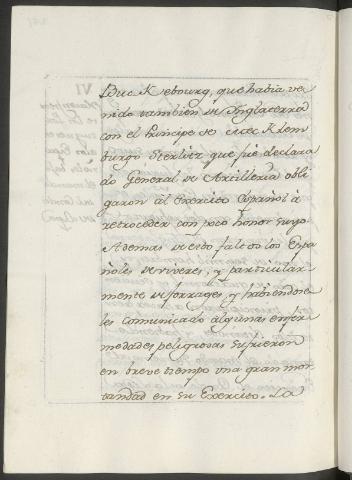 Duc Kebourg, que habia ve
nido tambien de Inglaterra
con el Principe de
burgo Sterlitz que fue declara
do General de Artilleria obli
garon al Exercito Español à
retroceder con poco honor suyo
Ademas de esto faltos los Espa
ñoles de viveres, y particular-
mente de forrages, y habiendose
les comunicado algunas enfer
medades peligrosas sufrieron
en breve tiempo una gran mor
tandad en su Exercito. La